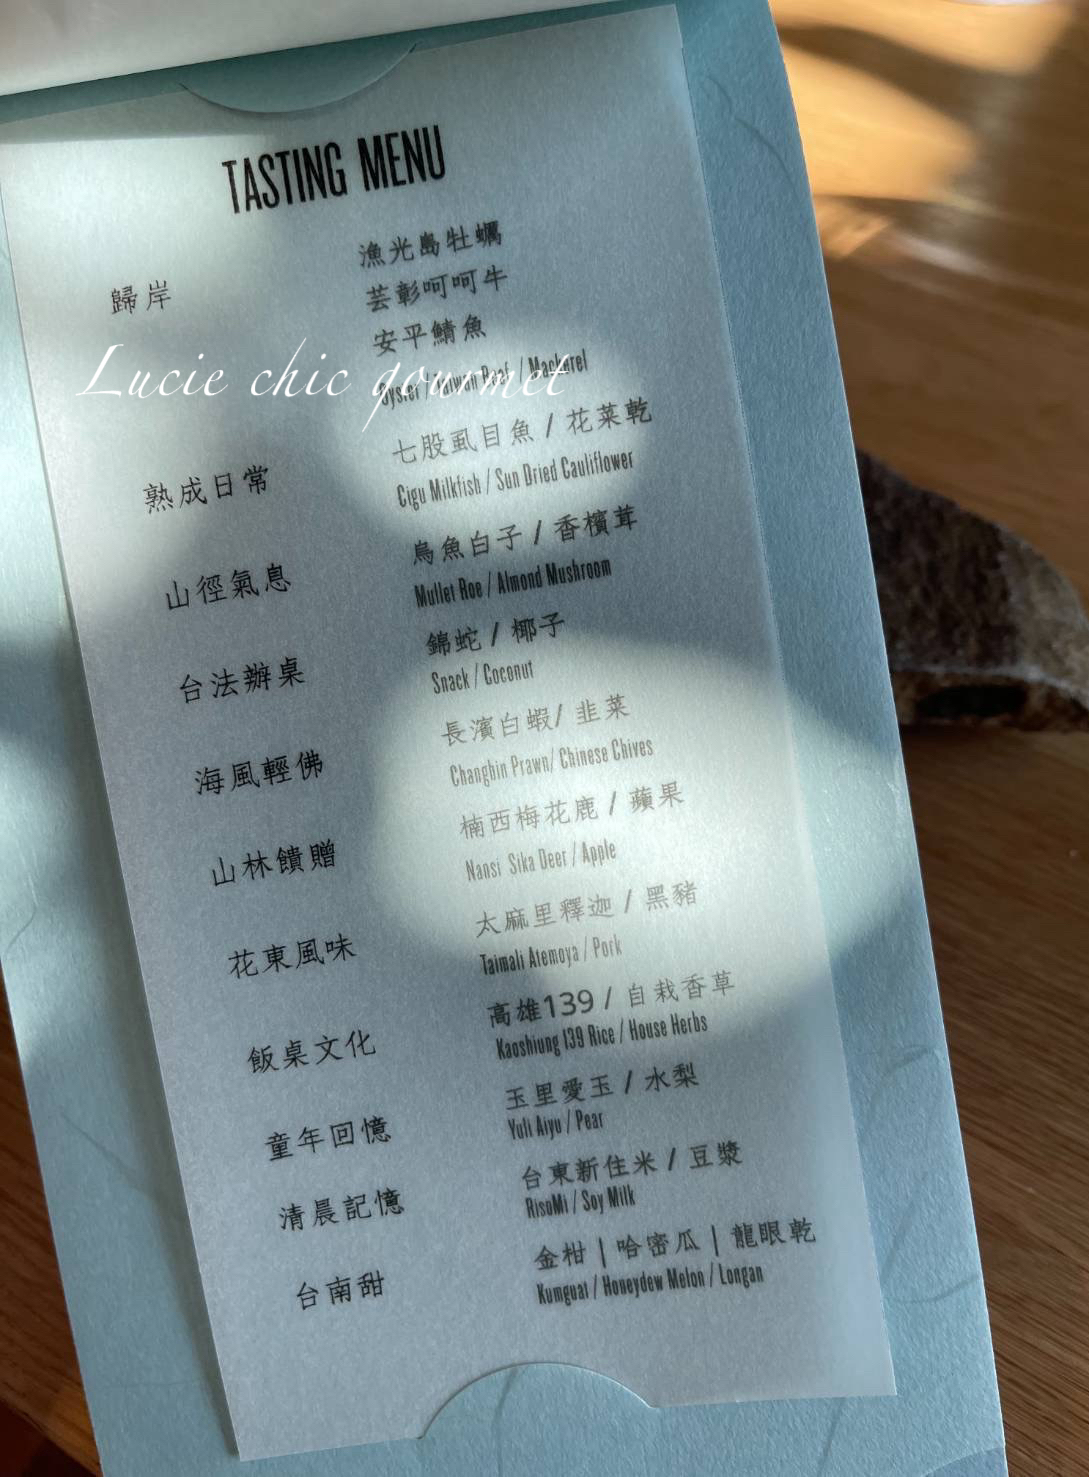 TASTING MENU
歸岸
漁光島牡蠣
芸彰呵呵牛
安平鯖魚
Oyster / Taiwan Beef / Mackerel
Lucie chic gourmet
熟成日常
七股虱目魚 / 花菜乾
Cigu Milkfish / Sun Dried Cauliflower
山徑氣息
烏魚白子 / 香檳茸
Mullet Roe / Almond Mushroom
台法辦桌
錦蛇 / 椰子
Snack / Coconut
海風輕佛
長濱白蝦/ 韭菜
Changbin Prawn/ Chinese Chives
山林饋贈
楠西梅花鹿 / 蘋果
Nansi Sika Deer / Apple
花東風味
太麻里釋迦 / 黑豬
Taimali Atemoya / Pork
飯桌文化
高雄139 / 自栽香草
Kaoshiung 139 Rice / House Herbs
童年回憶
玉里愛玉 / 水梨
Yuli Aiyu / Pear
清晨記憶
台東新住米 / 豆漿
RisoMi / Soy Milk
台南甜
金柑 | 哈密瓜 | 龍眼乾
Kumguat / Honeydew Melon / Longan